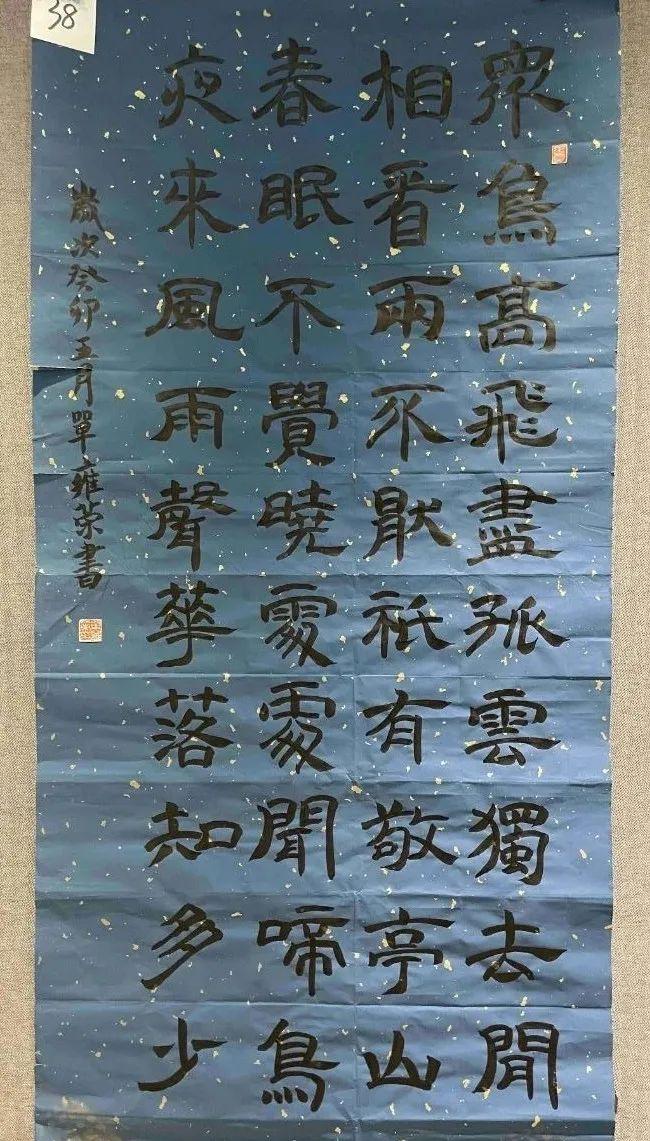 38
眾鳥髙飛盡孤雲獨去閒
相看兩不猒祇有敬亭山
春眠不覺曉處處聞啼鳥
夜來風雨聲華落知多少
歲次癸卯五月單雍荣書